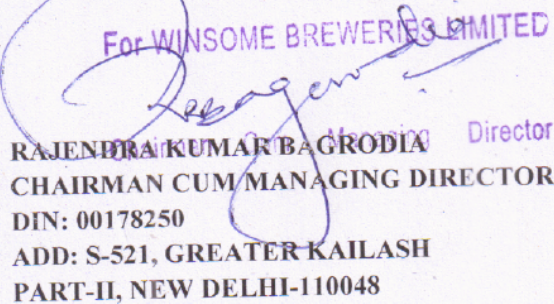 For WINSOME BREWERIES LIMITED
Chairman Cum Managing Director
RAJENDRA KUMAR BAGRODIA
CHAIRMAN CUM MANAGING DIRECTOR
DIN: 00178250
ADD: S-521, GREATER KAILASH
PART-II, NEW DELHI-110048